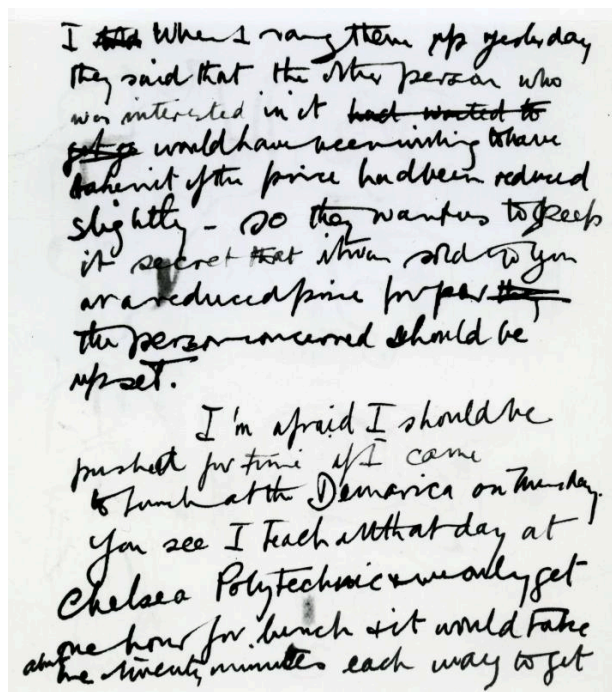 I When I rang them up yesterday
they said that the other person who
was interested in it had wanted to
would have been willing to have
taken it if the price had been reduced
slightly - so they want us to keep
it secret that it was sold to you
at a reduced price for fear they
the person concerned should be
upset.
I'm afraid I should be
pushed for time if I came
to lunch at the on Thursday.
You see I teach all that day at
Chelsea Polytechnic & we only get
one hour for lunch & it would take
about me twenty minutes each way to get